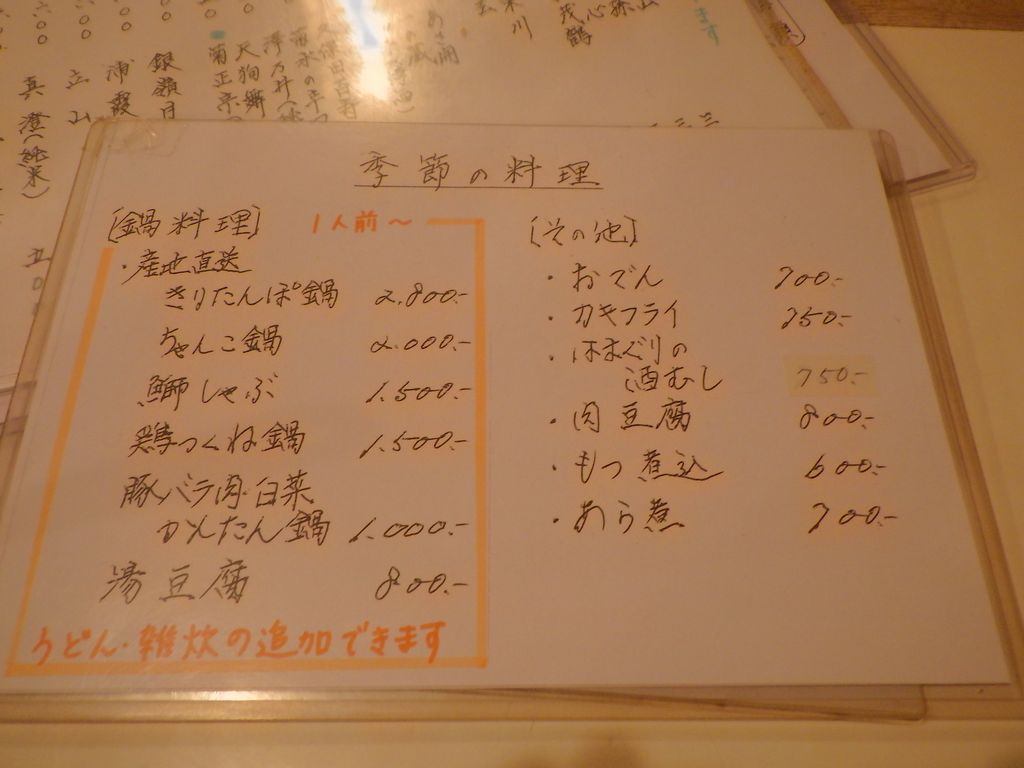 季節の料理
[鍋料理] 1人前〜
・産地直送
きりたんぽ鍋 2.800.-
ちゃんこ鍋 2.000.-
鰤しゃぶ 1.500.-
鶏つくね鍋 1.500.-
豚バラ肉・白菜
かんたん鍋 1.000.-
湯豆腐 800.-
うどん・雑炊の追加できます
[その他]
・おでん 700.-
・カキフライ 750.-
・はまぐりの
酒むし 750.-
・肉豆腐 800.-
・もつ煮込 600.-
・あら煮 700.-
銀嶺月
浦霞
立山
真澄(純米)
天狗郷
菊正宗
ます